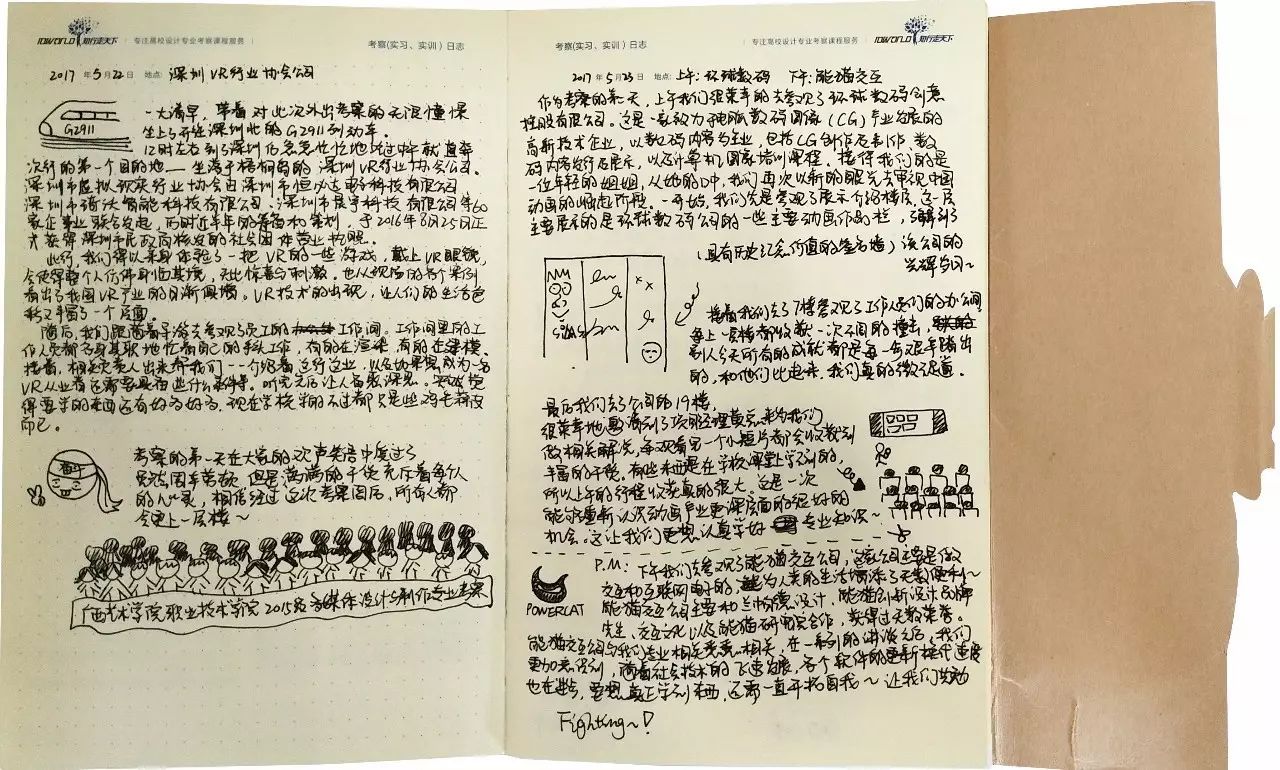 10WORLD 知行走天下 | 专注高校设计专业考察课程服务 |
考察(实习、实训)日志
2017 年 5 月 22 日 地点: 深圳VR行业协会公司
G2911
一大清早,带着对此次外出考察的无限憧憬
坐上了开往深圳北的G2911列动车。
12时左右到了深圳后急急忙忙地吃过午餐就直奔
次行的第一个目的地—坐落于梧桐岛的深圳VR行业协会公司。
深圳市虚拟现实行业协会由深圳市恒必达电子科技有限公司
深圳市 智能科技有限公司、深圳市 科技有限公司等60
家企事业联合发起,历时近半年的筹备和策划,于2016年8月25日正
式获得深圳市民政局核发的社会团体营业执照。
此行,我们得以亲身体验了一把VR的一些游戏,戴上VR眼镜,
会使得整个人仿佛身临其境,无比惊喜与刺激。也从现场的各个案例
看出了我国VR产业的日渐 。VR技术的出现,让人们的生活色
彩又丰富了一个层面。
随后,我们跟随着导游去参观了员工的工作间。工作间里的工
作人员都各司其职地忙着自己的手头工作,有的在渲染,有的在建模。
接着,相关负责人出来帮我们一一介绍着这行这业,以及如果想成为一名
VR从业者还需要具备些什么条件等。听完之后让人备感深思。突然觉
得要学的东西还有好多好多,现在学校学的不过都只是些鸡毛蒜皮
而已。
考察的第一天在大家的欢声笑语中度过了
虽然因车劳顿,但是满满的干货充斥着每个人
的心灵,相信经过这次考察回后,所有人都
会更上一层楼~
广西艺术学院职业技术学院2015级多媒体设计与制作专业考察
考察(实习、实训)日志
专注高校设计专业考察课程服务 | 10WORLD 知行走天下
2017 年 5 月 23 日 地点: 上午:环球数码 下午:能猫交互
作为考察的第二天,上午我们很荣幸的去参观了环球数码创意
控股有限公司。这是一家致力于电脑数码图像(CG)产业发展的
高新技术企业,以数码内容为主业,包括CG创作及制作、数
码内容发行及展示,以及计算机图象培训课程。接待我们的是
一位年轻的姐姐,从她的口中,我们再次以新的眼光去审视中国
动画的崛起所在。一开始,我们先是参观了展示介绍楼层,这一层
主要展示的是环球数码公司的一些主要动画作品栏,了解到了
(具有历史纪念价值的签名墙)该公司的
光辉与日~
接着我们去了7楼参观了工作人员们的办公间
每上一层楼都收获一次不同的撞击,
到从今天所有的成就都是每一步艰辛踏出
的,和他们比起来,我们真的微不足道。
最后我们去了公司的19楼,
很荣幸地邀请到了项目经理黄总来为我们
做相关解说,每观看完一个小短片都会收获到
丰富的干货。有些东西是在学校课堂上学不到的,
所以上午的行程收获真的很大。这是一次
能够重新认识动画产业更深层面的很好的
机会。这让我们更想认真学好专业知识~
P.M: 下午我们去参观了能猫交互公司,这家公司主要是做
交互和互联网电子的,能为人类的生活增添了无数便利~
能猫交互公司主要和兰帕德设计、能猫创新设计品牌
先生、交互文化以及能猫研究院合作,获得过无数荣誉。
POWERCAT
能猫交互公司与我们专业相关息息相关,在一系列的讲演之后,我们
更加意识到,随着社会技术的飞速发展,各个软件的更新换代速度
也在进步,要想真正学到东西,还需一直开拓自我~ 让我们共勉
Fighting~!